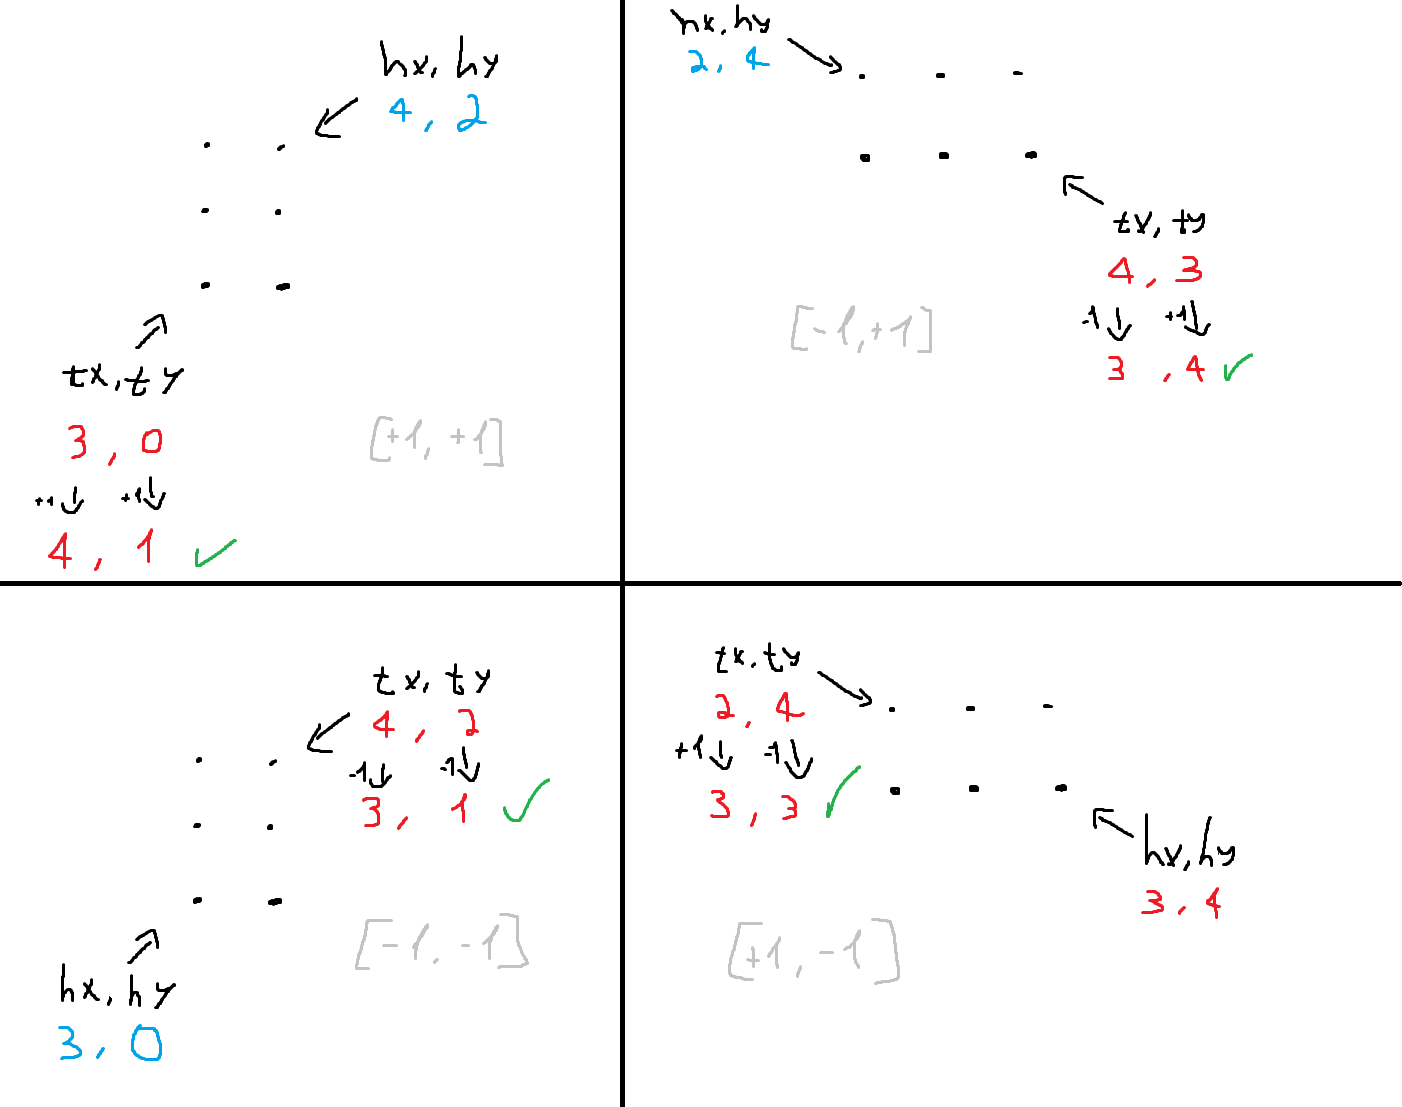 hx, hy
4, 2
tx, ty
3, 0
+1 +1
4, 1
[+1, +1]
hx, hy
2, 4
tx, ty
4, 3
-1 +1
3, 4
[-1, +1]
tx, ty
4, 2
-1 -1
3, 1
hx, hy
3, 0
[-1, -1]
tx, ty
2, 4
+1 -1
3, 3
hx, hy
3, 4
[+1, -1]